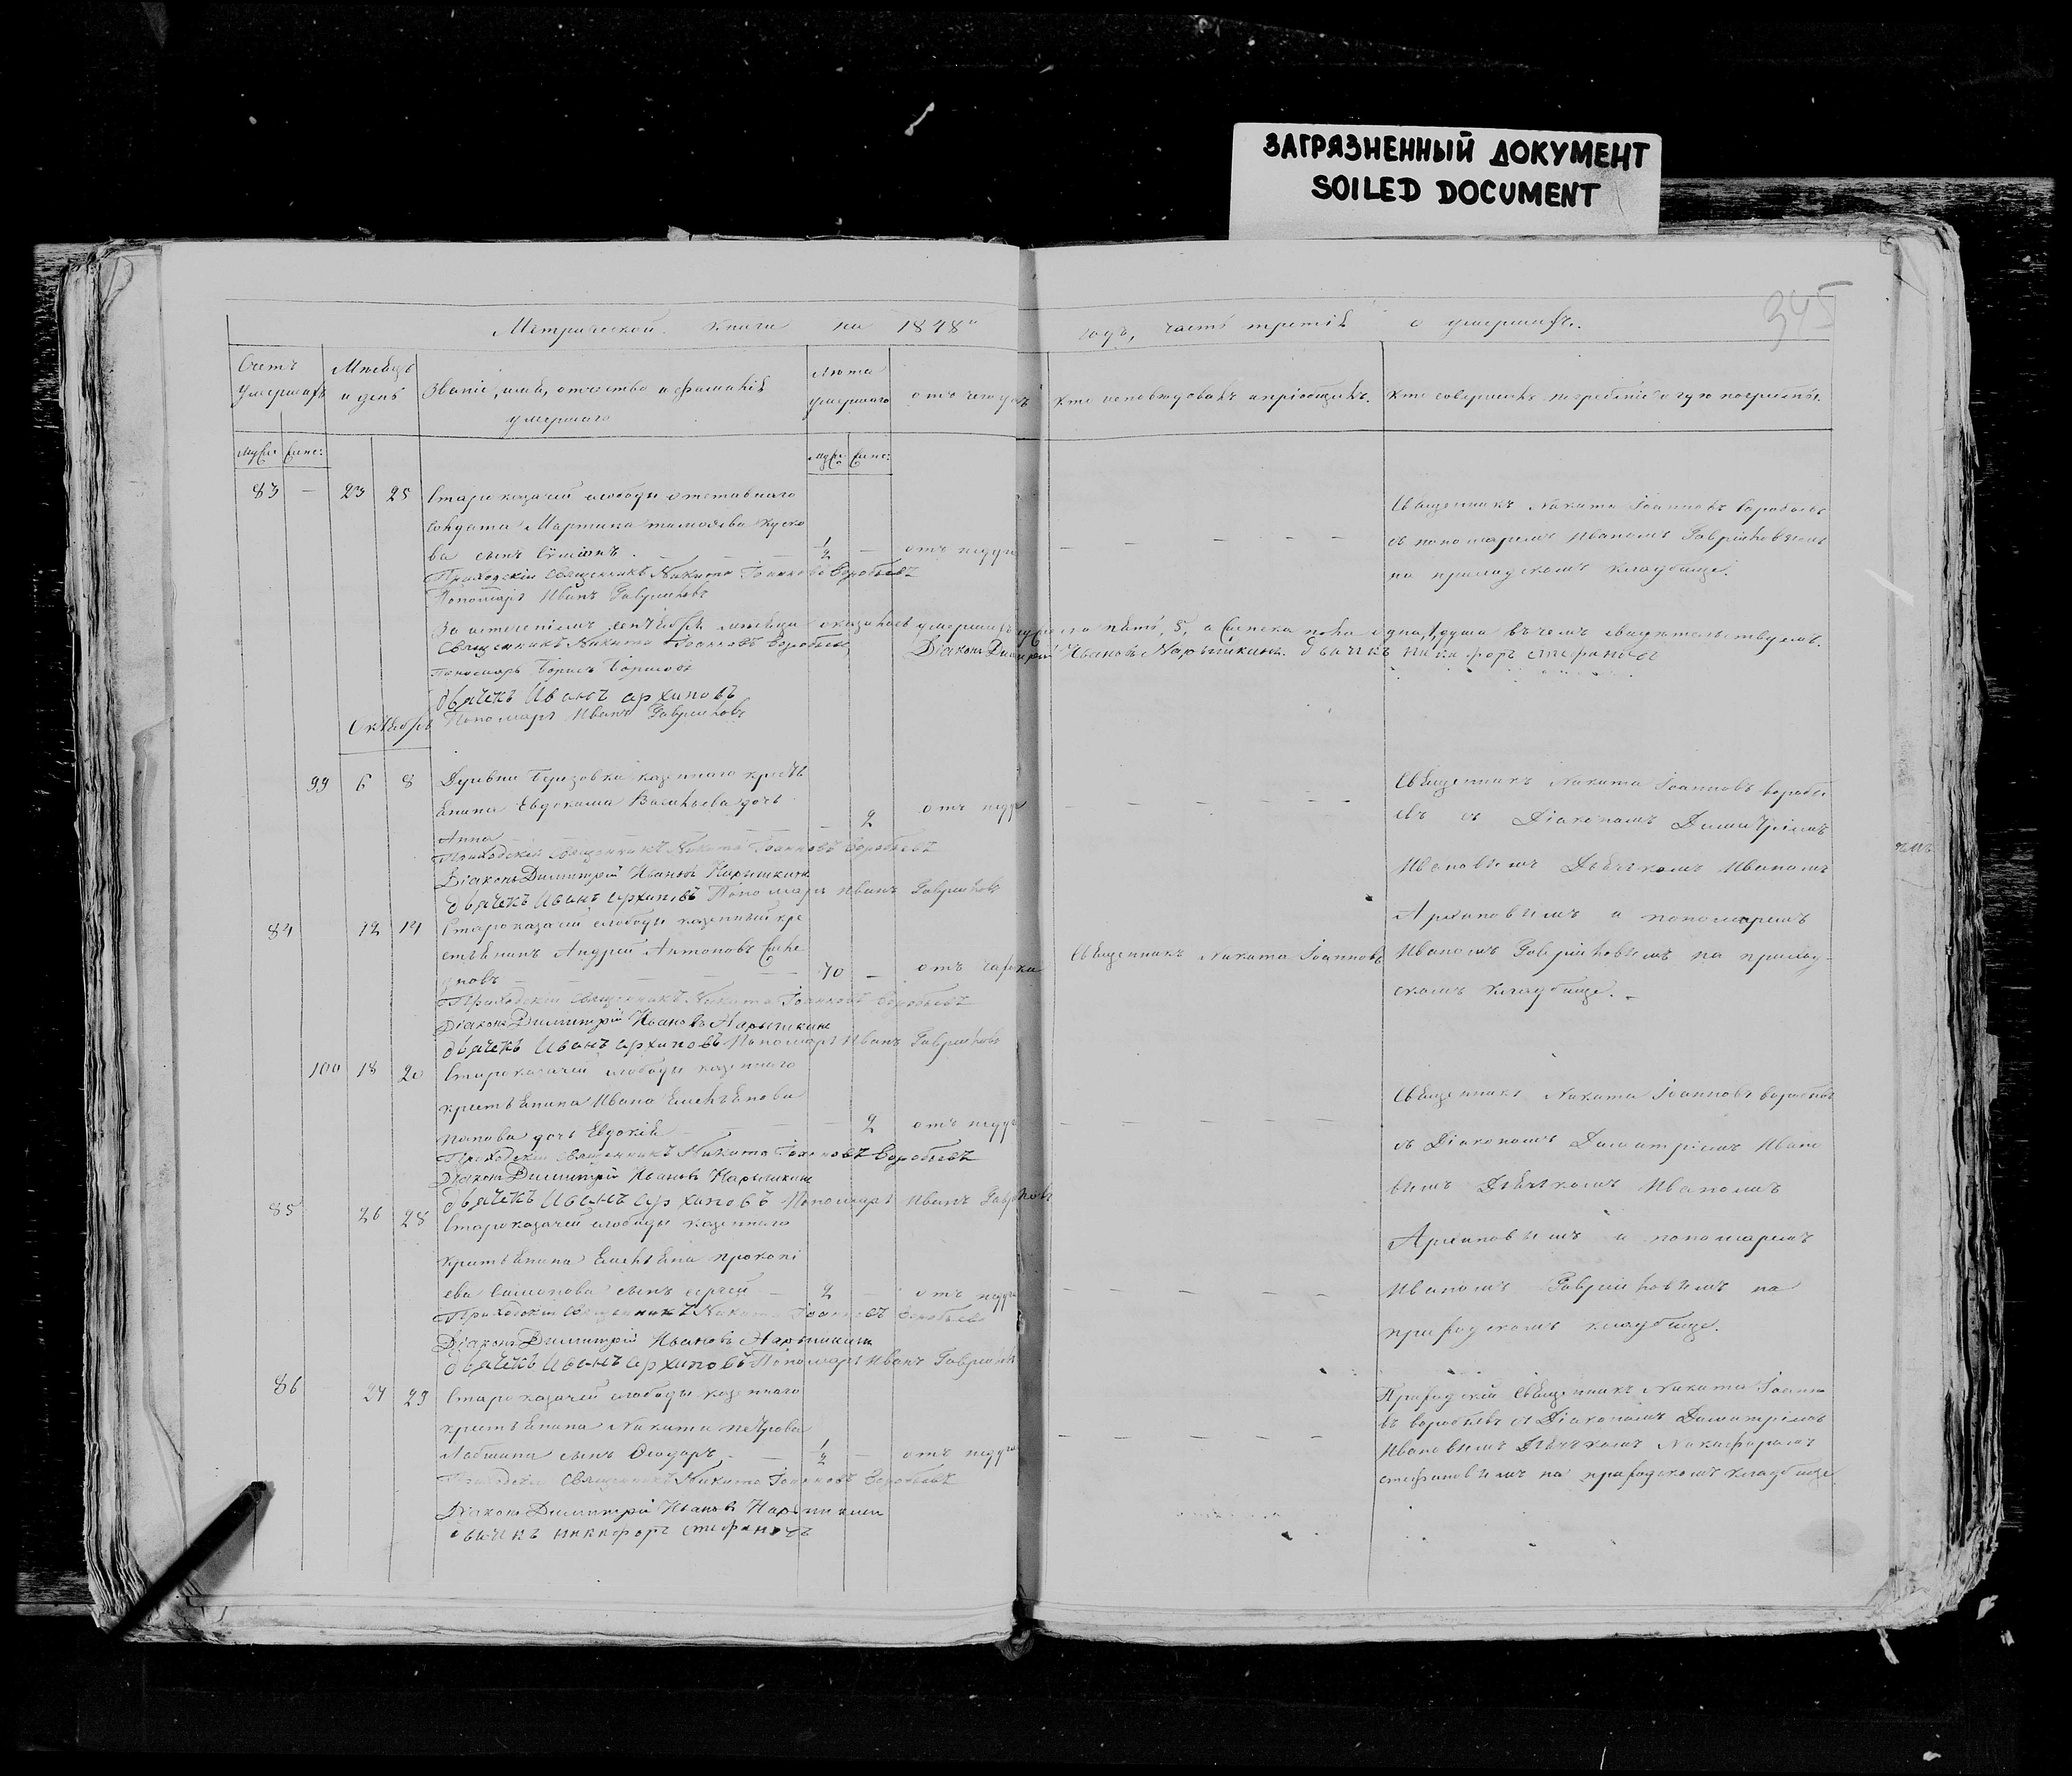 ЗАГРЯЗНЕННЫЙ ДОКУМЕНТ
SOILED DOCUMENT
345
Метрической книги на 1848й годъ, часть третія о умершихъ.
Счетъ умершихъ
Мѣсяцъ и день
Званіе, имя, отчество и фамилія умершаго
Лѣта умершаго
отъ чего умеръ
Кто исповѣдовалъ и пріобщилъ.
Кто совершилъ погребеніе и гдѣ погребены.
муже: женс:
муже: женс:
83 — 23 25 Старо казачей слободы отставнаго
солдата Мартина Тимоѳева Куско
ва сынъ Сѵмеонъ. — — — 1/2 — отъ недуга — — — — —
Приходскій Священникъ Никита Іоанновъ Воробьевъ
Пономарь Иванъ Гавриловъ
Священникъ Никита Іоанновъ Воробьевъ
съ пономаремъ Иваномъ Гавриловымъ
на приходскомъ кладбище.
За истеченіемъ сентября мѣсяца оказалось умершихъ мужеска пять, 5, а женска пола одна, 1, душа въ чемъ свидѣтельствуемъ.
Священникъ Никита Іоанновъ Воробьевъ Діаконъ Димитрій Ивановъ Нарышкинъ. дьячекъ Никифоръ Стефановъ
Пономарь Борисъ Борисовъ
дьячекъ Иванъ Архиповъ
Пономарь Иванъ Гавриловъ
Октябрь
99 6 8 Деревни Березовки казеннаго кресть
янина Евдокима Васильева дочь
Анна — — — — 2 отъ недуга — — — — —
Приходскій Священникъ Никита Іоанновъ Воробьевъ
Діаконъ Димитрій Ивановъ Нарышкинъ
дьячекъ Иванъ Архиповъ Пономарь Иванъ Гавриловъ
Священникъ Никита Іоанновъ Воробь
евъ съ Діакономъ Димитріемъ
Ивановымъ Дьячкомъ Иваномъ
Архиповымъ и пономаремъ
Иваномъ Гавриловымъ на приход-
скомъ кладбище.
84 12 14 Старо казачей слободы казенный кре
стьянинъ Андрей Антоновъ
— — — 70 — отъ чахотки Священникъ Никита Іоанновъ
Приходскій Священникъ Никита Іоанновъ Воробьевъ
Діаконъ Димитрій Ивановъ Нарышкинъ
дьячекъ Иванъ Архиповъ Пономарь Иванъ Гавриловъ
100 18 20 Старо казачей слободы казеннаго
крестьянина Ивана Емельянова
Попова дочь Евдокія — — — — 2 отъ недуга — — — — —
Приходскій Священникъ Никита Іоанновъ Воробьевъ
Діаконъ Димитрій Ивановъ Нарышкинъ
дьячекъ Иванъ Архиповъ Пономарь Иванъ Гавриловъ
Священникъ Никита Іоанновъ Воробьевъ
съ Діакономъ Димитріемъ Ивано
вымъ Дьячкомъ Иваномъ
Архиповымъ и пономаремъ
Иваномъ Гавриловымъ на
приходскомъ кладбище.
85 26 28 Старо казачей слободы казеннаго
крестьянина Емельяна Прокопі
ева сынъ Сергей — 2 — отъ недуга — — — — —
Приходскій Священникъ Никита Іоанновъ Воробьевъ
Діаконъ Димитрій Ивановъ Нарышкинъ
дьячекъ Иванъ Архиповъ Пономарь Иванъ Гавриловъ
86 27 29 Старо казачей слободы казеннаго
крестьянина Никиты Петрова
сынъ Ѳеодоръ. — — 1/2 — отъ недуга — — — — —
Приходскій Священникъ Никита Іоанновъ Воробьевъ
Діаконъ Димитрій Ивановъ Нарышкинъ
дьячекъ Никифоръ Стефановъ
Приходскій Священникъ Никита Іоанно
въ Воробьевъ съ Діакономъ Димитріемъ
Ивановымъ Дьячкомъ Никифоромъ
Стефановымъ на приходскомъ кладбище